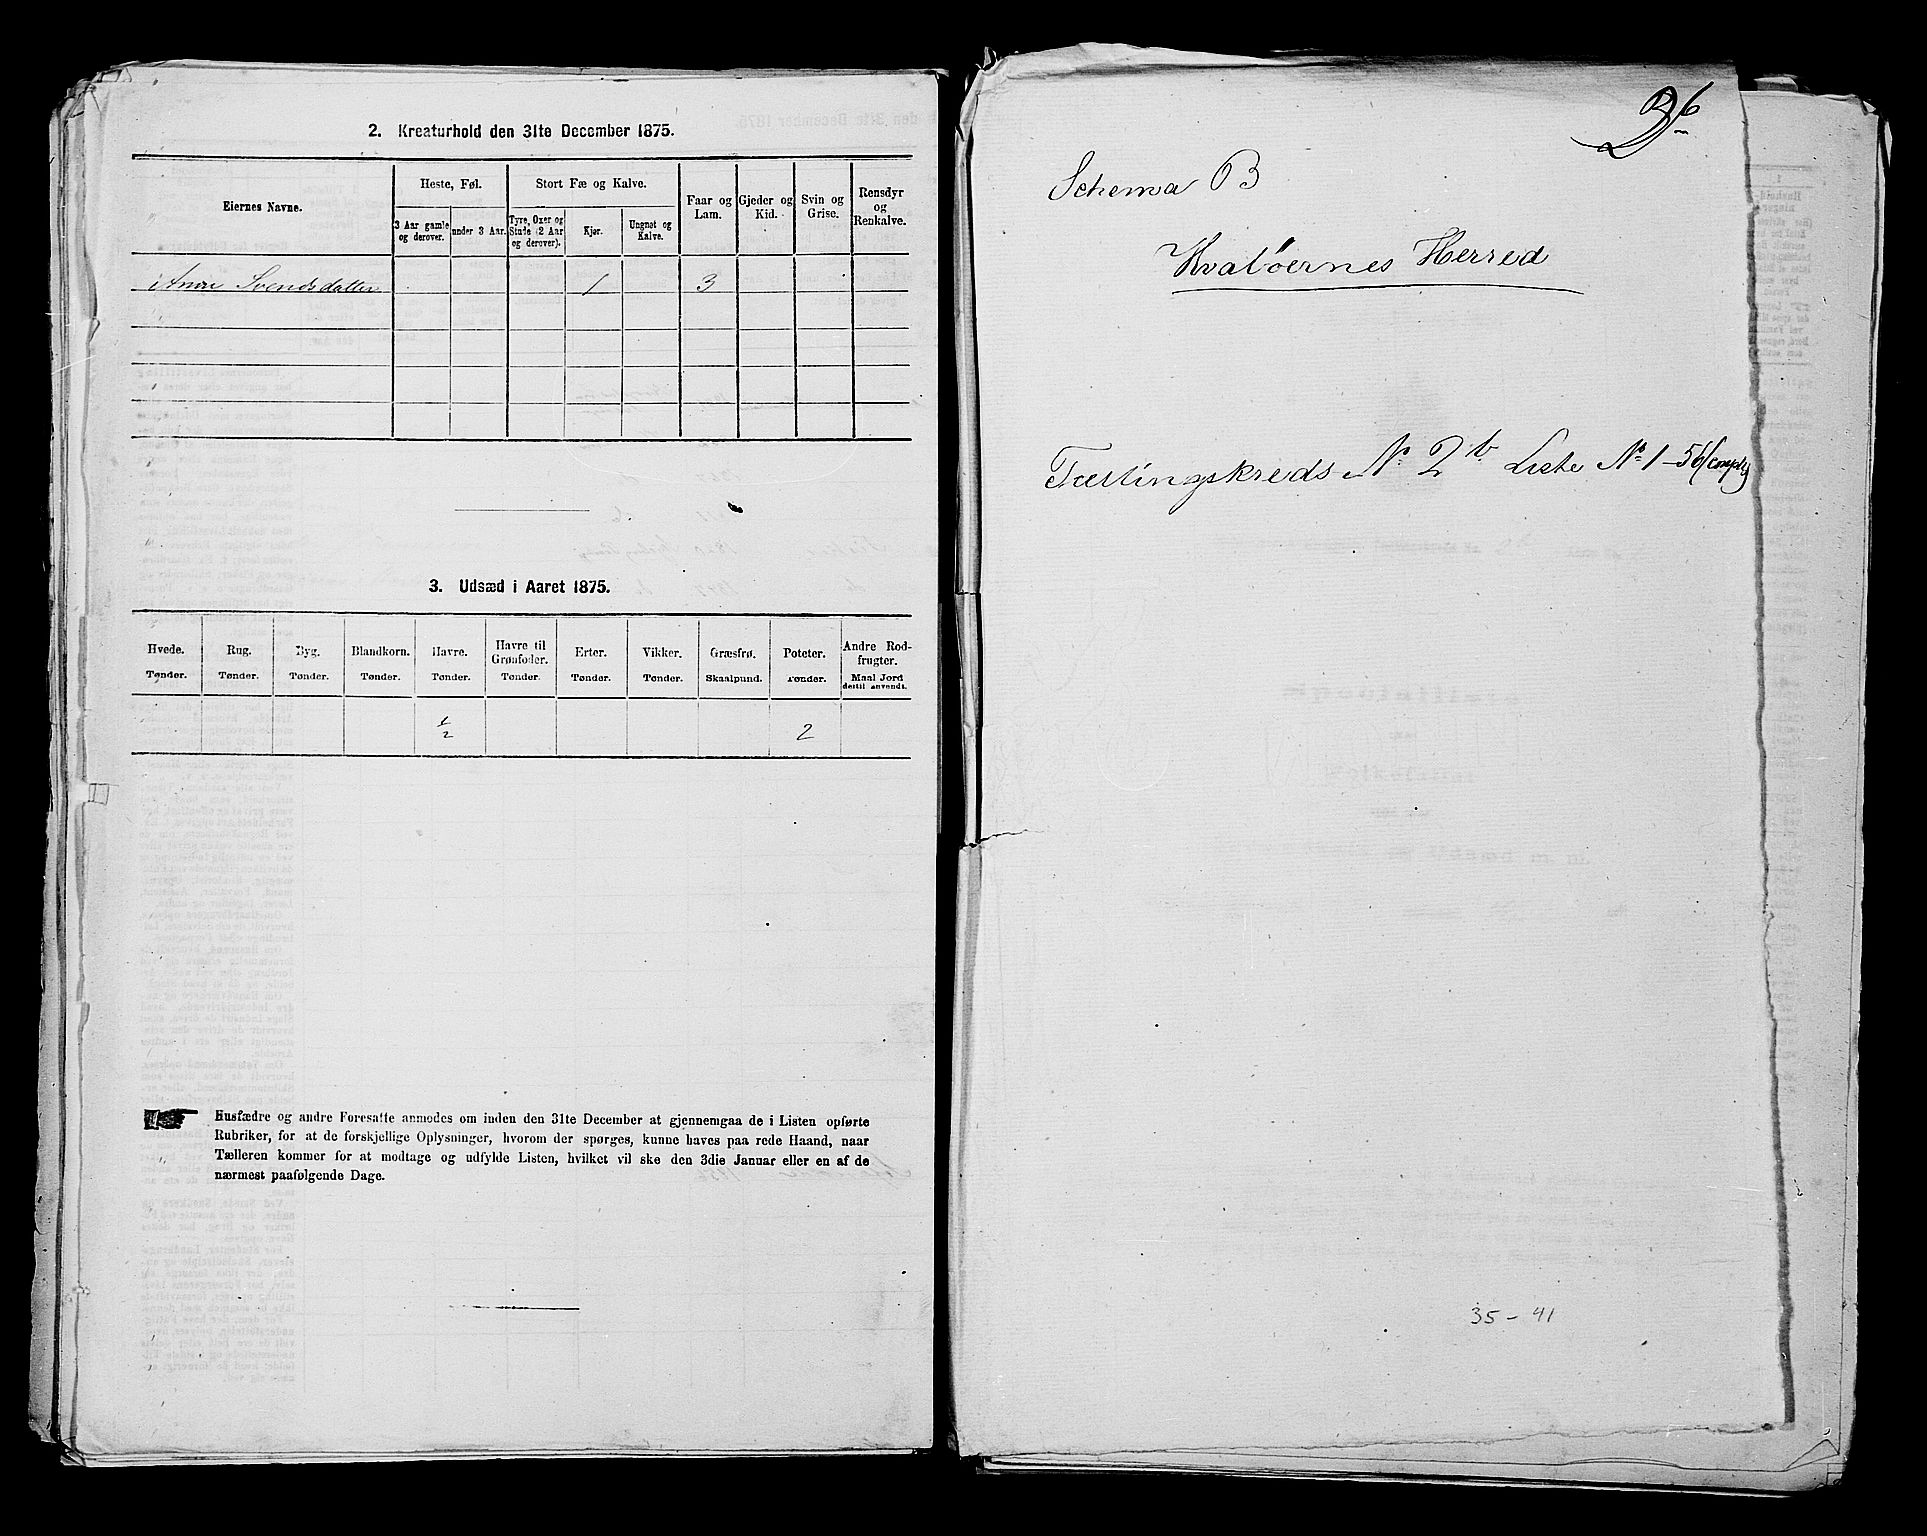 2. Kreaturhold den 31te December 1875.
Eiernes Navne.
Heste, Føl.
Stort Fæ og Kalve.
3 Aar gamle og derover.
under 3 Aar.
Tyre, Oxer og Stude (2 Aar og derover).
Kjør.
Ungnøt og Kalve.
Faar og Lam.
Gjeder og Kid.
Svin og Grise.
Rensdyr og Renkalve.
Svendsdatter 1 3
3. Udsæd i Aaret 1875.
Hvede. Rug. Byg. Blandkorn. Havre. Havre til Grønfoder. Erter. Vikker. Græsfrø. Poteter. Andre Rodfrugter.
Tønder. Tønder. Tønder. Tønder. Tønder. Tønder. Tønder. Tønder. Skaalpund. Tønder. Maal Jord dertil anvendt.
1/2 2
Husfædre og andre Foresatte anmodes om inden den 31te December at gjennemgaa de i Listen opførte
Rubriker, for at de forskjellige Oplysninger, hvorom der spørges, kunne haves paa rede Haand, naar
Tælleren kommer for at modtage og udfylde Listen, hvilket vil ske den 3die Januar eller en af de
nærmest paafølgende Dage.
Schema B
Hvaløernes Herred
Tællingskreds No 2b Liste No 1-56
35-41